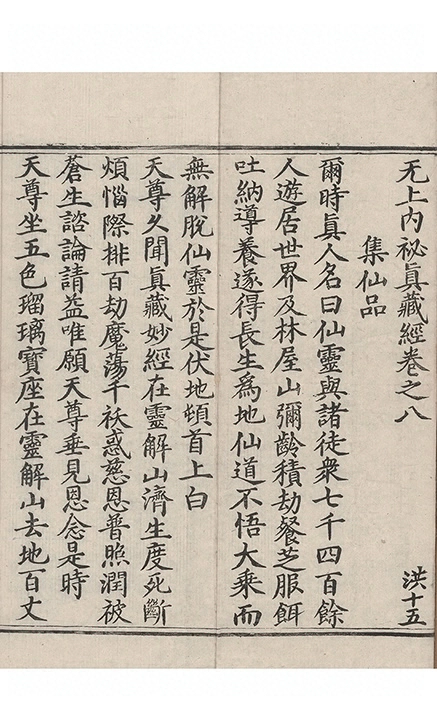 无上內祕眞藏經卷之八
洪十五
集仙品
爾時眞人名曰仙靈與諸徒衆七千四百餘
人遊居世界及林屋山彌齡積劫餐芝服餌
吐納導養遂得長生為地仙道不悟大乘而
無解脫仙靈於是伏地頓首上白
天尊久聞眞藏妙經在靈解山濟生度死斷
煩惱際排百劫魔蕩千祅惑慈恩普照潤被
蒼生諮論請益唯願天尊垂見恩念是時
天尊坐五色瑠璃寶座在靈解山去地百丈